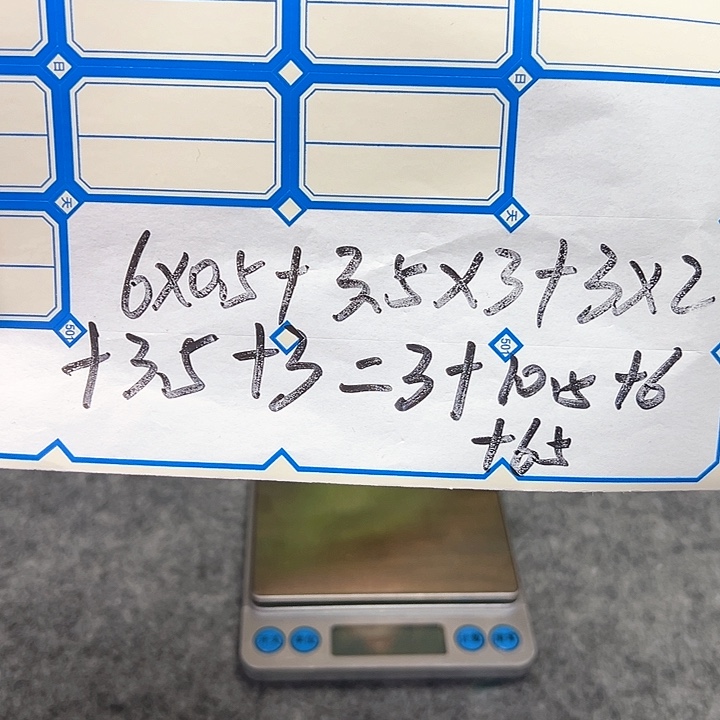 日
日
天
天
6×0.5+3.5×3+3×2
50
50
+3.5+3=3+10.5+6
+6.5